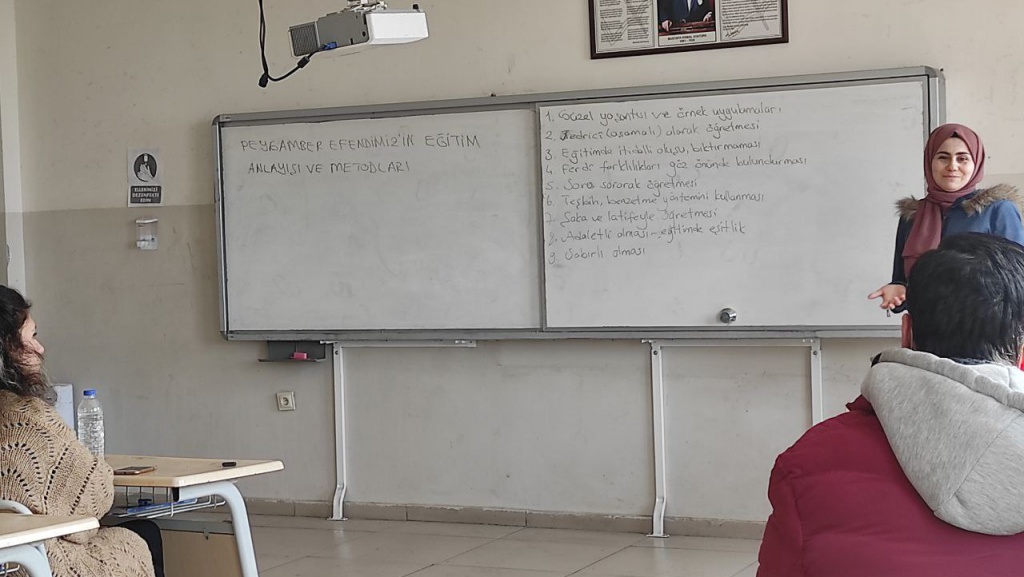 PEYGAMBER EFENDİMİZ'İN EĞİTİM
ANLAYIŞI VE METODLARI
1. Güzel yaşantısı ve örnek uygulamaları
2. Tedrici (aşamalı) olarak öğretmesi
3. Eğitimde itidalli oluşu, bıktırmaması
4. Ferdi farklılıkları göz önünde bulundurması
5. Soru sorarak öğretmesi
6. Teşbih, benzetme yöntemini kullanması
7. Şaka ve latifeyle öğretmesi
8. Adaletli olması - eğitimde eşitlik
9. Sabırlı olması
ELLERİNİZİ
DEZENFEKTE
EDİN